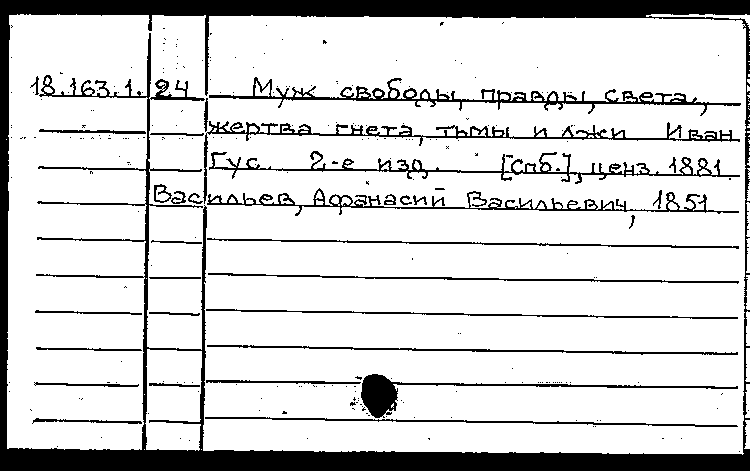 18.163.1.24 Муж свободы, правды, света.,
жертва гнета, тьмы и лжи Иван
Гус. 2-е изд. [Спб.], ценз. 1881
Васильев, Афанасий Васильевич, 1851